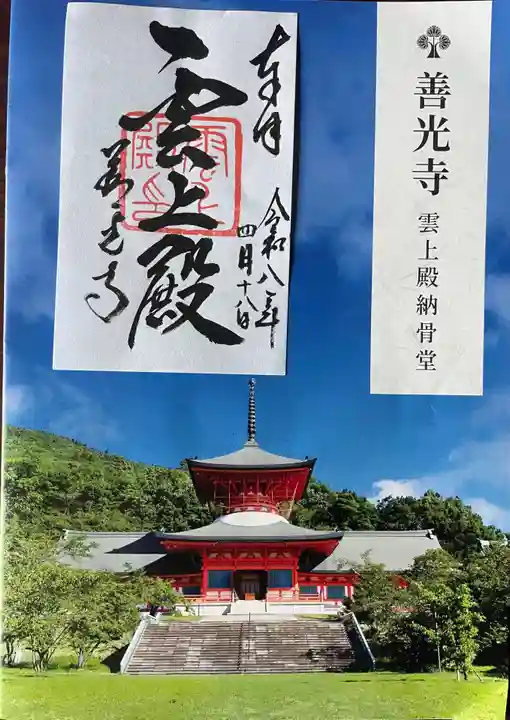 善光寺 雲上殿納骨堂
奉拝
令和八年
四月十八日
雲上殿
善光寺